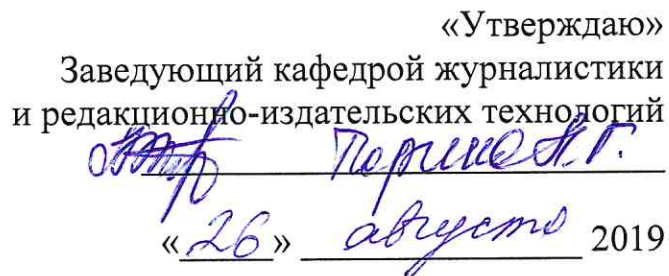 «Утверждаю»
Заведующий кафедрой журналистики
и редакционно-издательских технологий
Н.Г.
«26» августа 2019